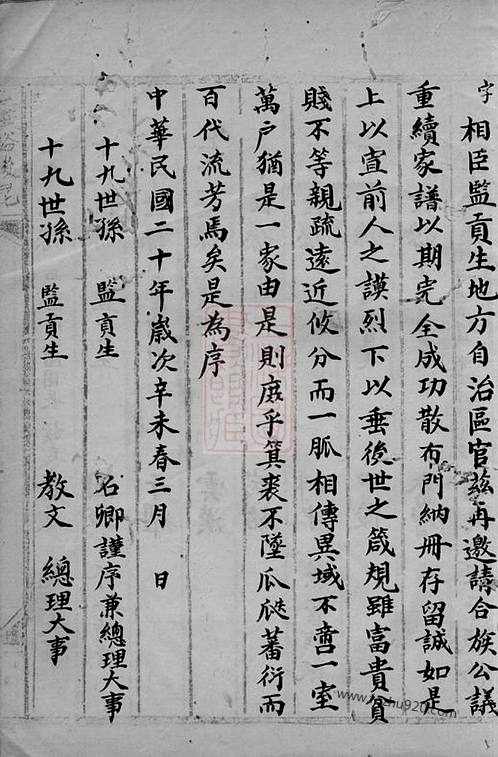 字相臣監貢生地方自治區官茲再邀請合族公議
重續家譜以期完全成功散布門納冊存留誠如是
上以宣前人之謨烈下以垂後世之箴規雖富貴貧
賤不等親疏遠近攸分而一脈相傳異域不啻一室
萬户猶是一家由是則庶乎箕裘不墜瓜瓞蕃衍而
百代流芳焉矣是為序
中華民國二十年歲次辛未春三月 日
十九世孫 監貢生 石卿謹序兼總理大事
十九世孫 監貢生 教文 總理大事